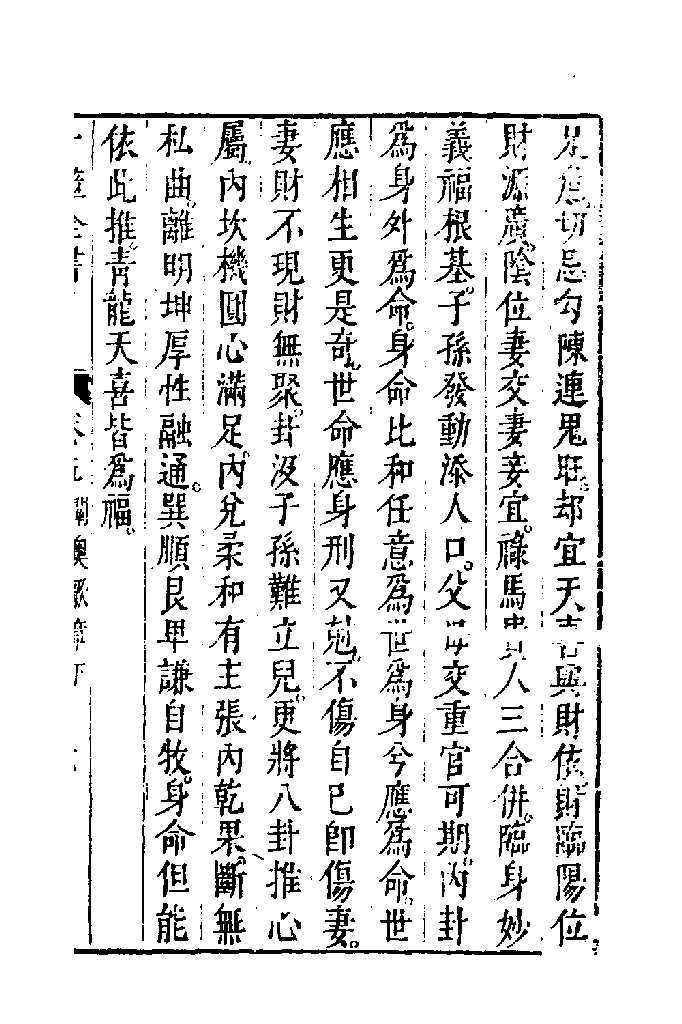 足為切忌勾陳連鬼旺却宜天喜與財依財臨陽位
財源廣陰位妻交妻妾宜祿馬貴人三合併臨身妙
義福根基子孫發動添人口父母交重官可期內卦
為身外為命身命比和任意為世為身兮應為命世
應相生更是奇世命應身刑又尅不傷自己卽傷妻
妻財不現財無聚卦沒子孫難立兒更將八卦推心
屬內坎機圓心滿足內兌柔和有主張內乾果斷無
私曲離明坤厚性融通巽順艮卑謙自牧身命但能
依此推青龍天喜皆為福
卜筮全書 卷五闡奧歌章